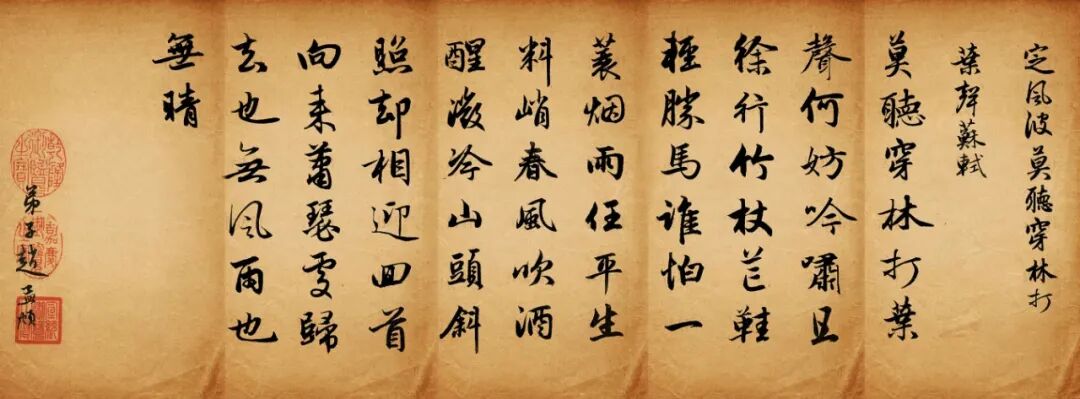 定風波莫聽穿林打
葉聲蘇軾
莫聽穿林打葉
聲何妨吟嘯且
徐行竹杖芒鞋
輕勝馬誰怕一
蓑烟雨任平生
料峭春風吹酒
醒微冷山頭斜
照却相迎回首
向来蕭瑟處歸
去也無風雨也
無晴
弟子趙孟頫